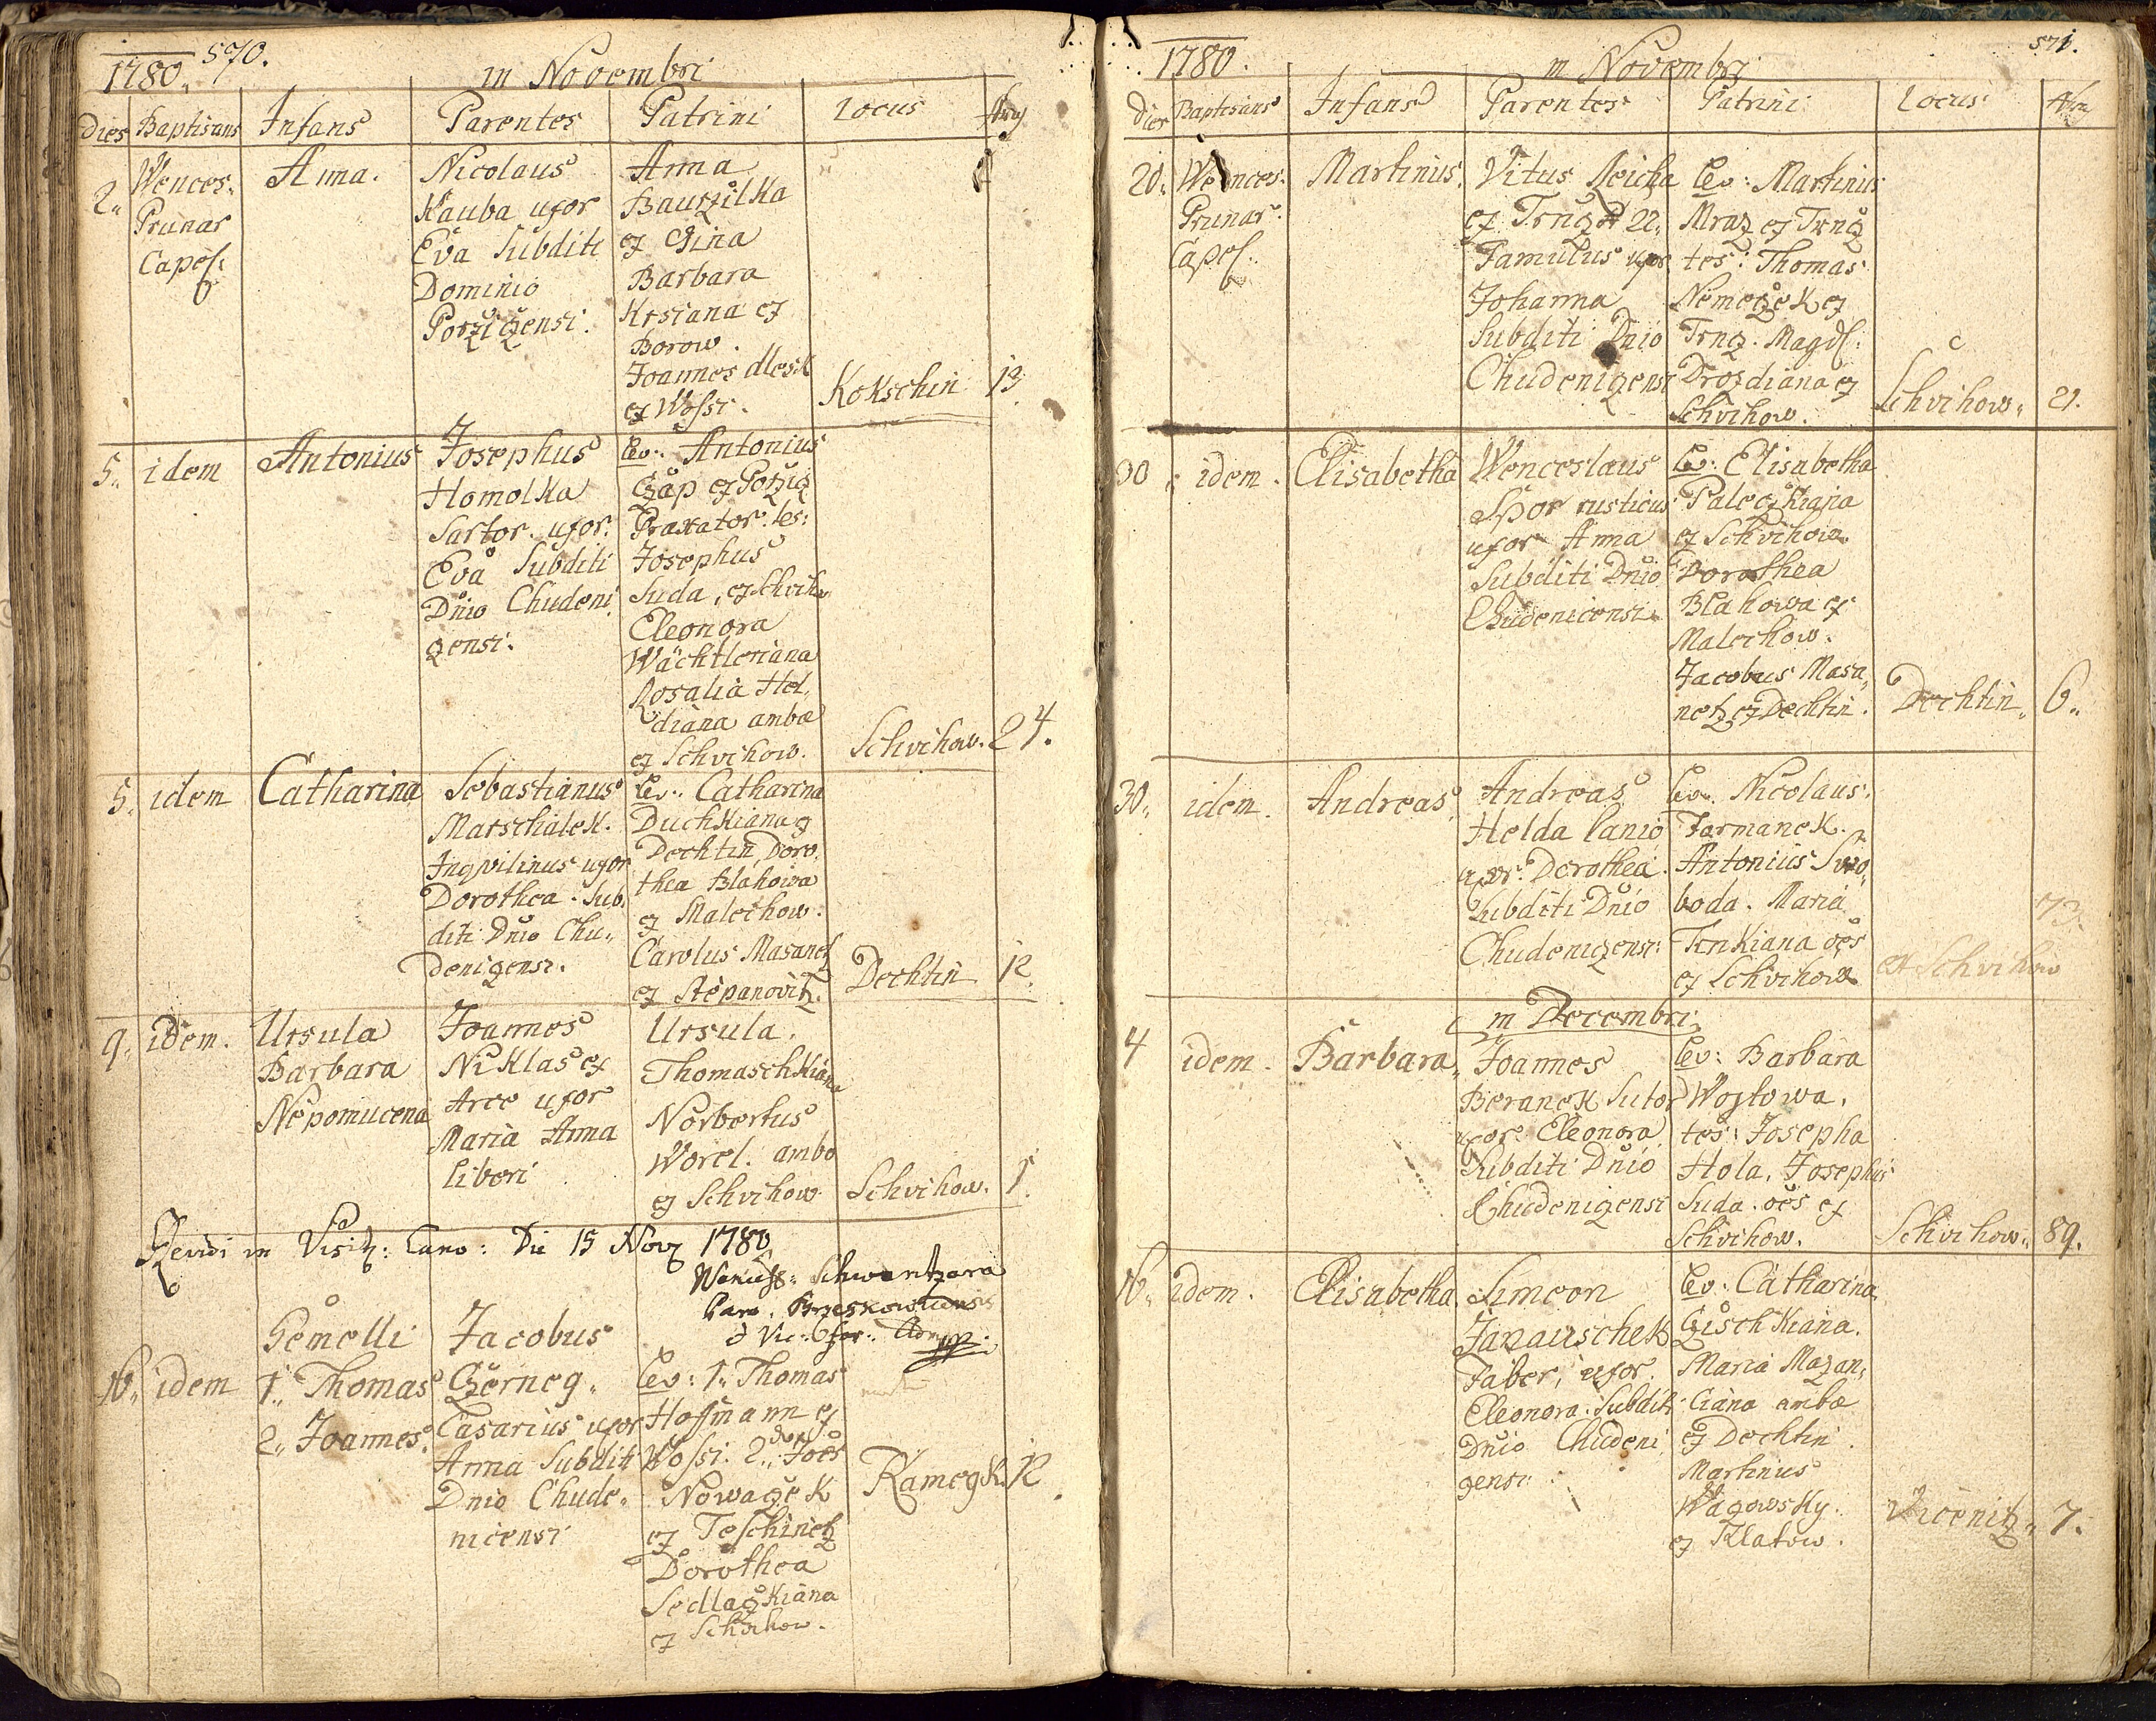 1780. 570.
in Novembri
Dies Baptisans Infans Parentes Patrini Locus
2. Wences. Prunar Capel:
Anna.
Nicolaus
Kauba uxor
Eva Subditi
Dominio
Porzizensi.
Anna
Bauzilka
ex Gina
Barbara
Krsiana ex
Borow.
Joannes dlesk
ex Wossi.
Kokschin 13
5. idem Antonius
Josephus
Homolka
Sartor. uxor.
Eva Subditi
Dnio Chudeni
zensi.
Lev: Antonius
Czap ex Porziz
Braxator. tes:
Josephus
Suda, ex Schviho
Eleonora
Wächtleriana
Rosalia Hel,
diana ambae
ex Schvihow.
Schvihow. 24.
5. idem Catharina
Sebastianus
Marschalek.
Inqvilinus uxor
Dorothea. Sub,
diti Dnio Chu,,
denizensi.
Lev: Catharina
Duchkiana ex
Dechtin, Doro,
thea Blahowa
ex Malechow.
Carolus Masanetz
ex Stepanovitz.
Dechtin 12.
9. idem.
Ursula
Barbara
Nepomucena
Joannes
Niklas ex
Arce uxor
Maria Anna
liberi
Ursula.
Thomaschkiana
Norbertus
Worel. ambo
ex Schvihow
Schvihow. 1.
Revidi in Visit: Cano: Die 15 Nov 1780
Schwartzara
16. idem
Gemelli
1. Thomas
2. Joannes.
Jacobus
Czerneg.
Casarius uxor
Anna Subditi
Dnio Chude,
nicensi
Lev: 1. Thomas
Hoffmann ex
Wossi. 2. Joes
Nowazek
ex Teschinetz
Dorothea
Sedlaczkiana
ex Schvihow.
Kamegk. 12.
1780.
in Novembri
571.
Dies Baptisans Infans Parentes Patrini Locus
20. Wences. Prunar. Capel.
Martinus.
Vitus Reicha
ex Trnz N 22.
Famulus uxor
Johanna
Subditi Dnio
Chudenizensi
Lev: Martinus
Mraz ex Trnz
tes: Thomas
Nemeczek ex
Trnz. Magd:
Drozdiana ex
Schvihow.
Schvihow. 21.
30. idem. Elisabetha
Wenceslaus
Spor rusticus
uxor Anna
Subditi Dnio
Chudenicensi.
Lev: Elisabetha
Paleczkiana
ex Schvihow.
Dorothea
Blahowa ex
Malechow.
Jacobus Masa,
netz ex Dechtin.
Dechtin. 6.
30. idem. Andreas.
Andreas
Helda lanio
uxor. Dorothea.
Subditi Dnio
Chudenizensi:
Lev. Nicolaus.
Jarmanek.
Antonius Swo,
boda. Maria
Tinkiana oes
ex Schvihow
ex Schvihow 73.
in Decembri:
4 idem. Barbara.
Joannes
Beranek Sutor
uxor. Eleonora
Subditi Dnio
Chudenizensi
Lev: Barbara
Wojtowa.
tes: Josepha
Hola, Josephus
Suda. oes ex
Schvihow.
Schvihow. 89.
16. idem. Elisabetha
Simeon
Janauschek
Faber, uxor.
Eleonora. Subditi
Dnio Chudeni
zensi.
Lev: Catharina
Czischkiana.
Maria Mazan,
ciana ambae
ex Dechtin.
Martinus
Wagowsky.
ex Klatow.
Vicenitz. 7.